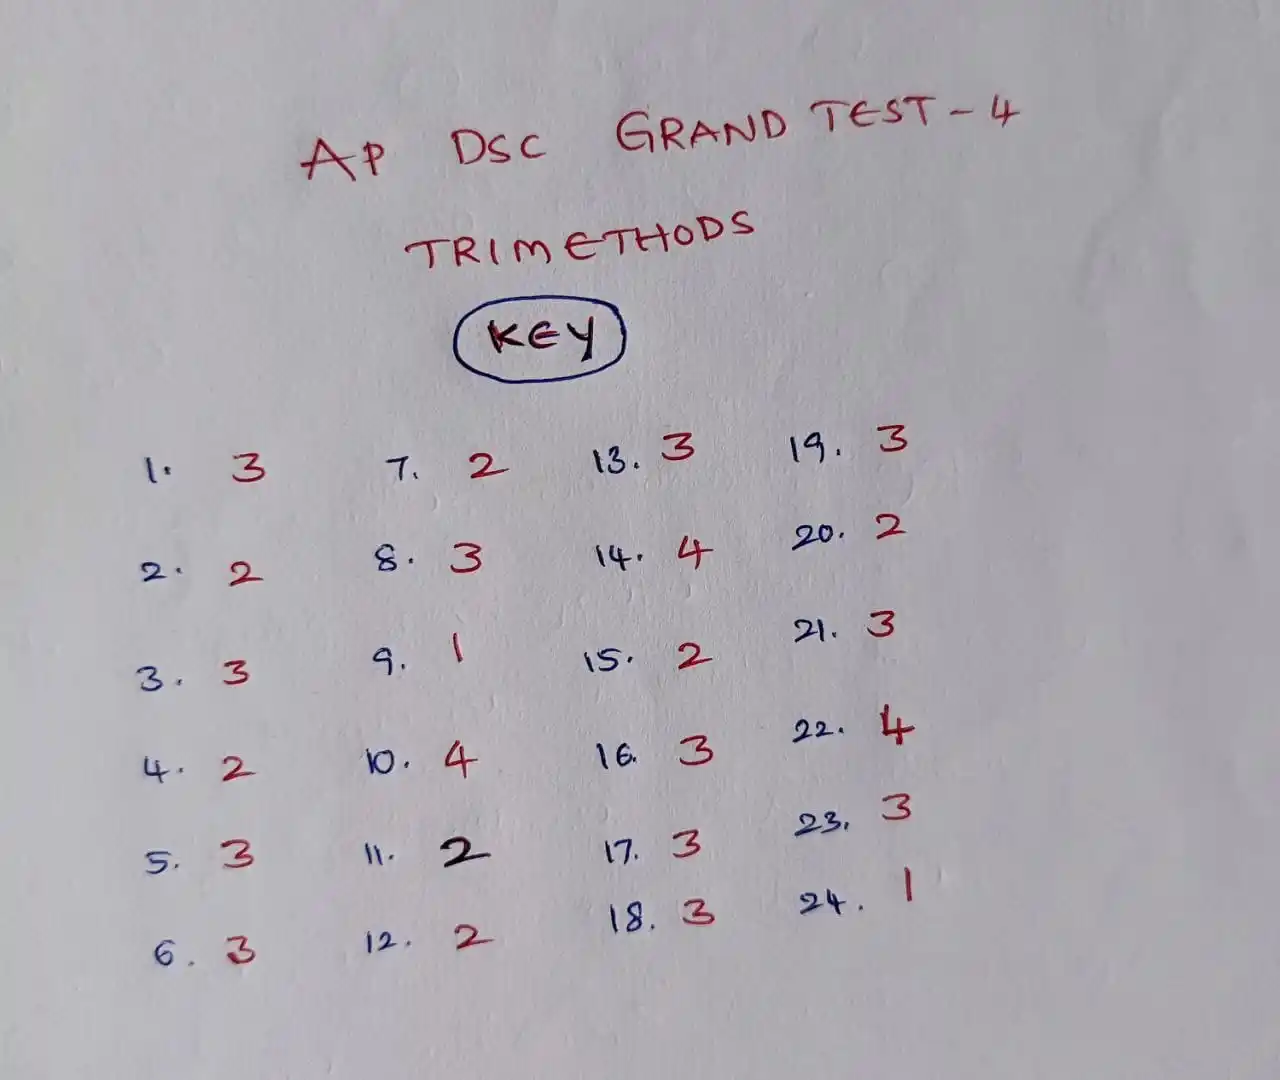 AP DSC GRAND TEST - 4
TRIMETHODS
KEY
1. 3 7. 2 13. 3 19. 3
2. 2 8. 3 14. 4 20. 2
3. 3 9. 1 15. 2 21. 3
4. 2 10. 4 16. 3 22. 4
5. 3 11. 2 17. 3 23. 3
6. 3 12. 2 18. 3 24. 1